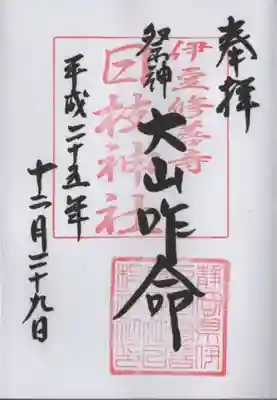 奉拝
伊豆修善寺
祭神 大山咋命
日枝神社
平成二十五年
十二月二十九日